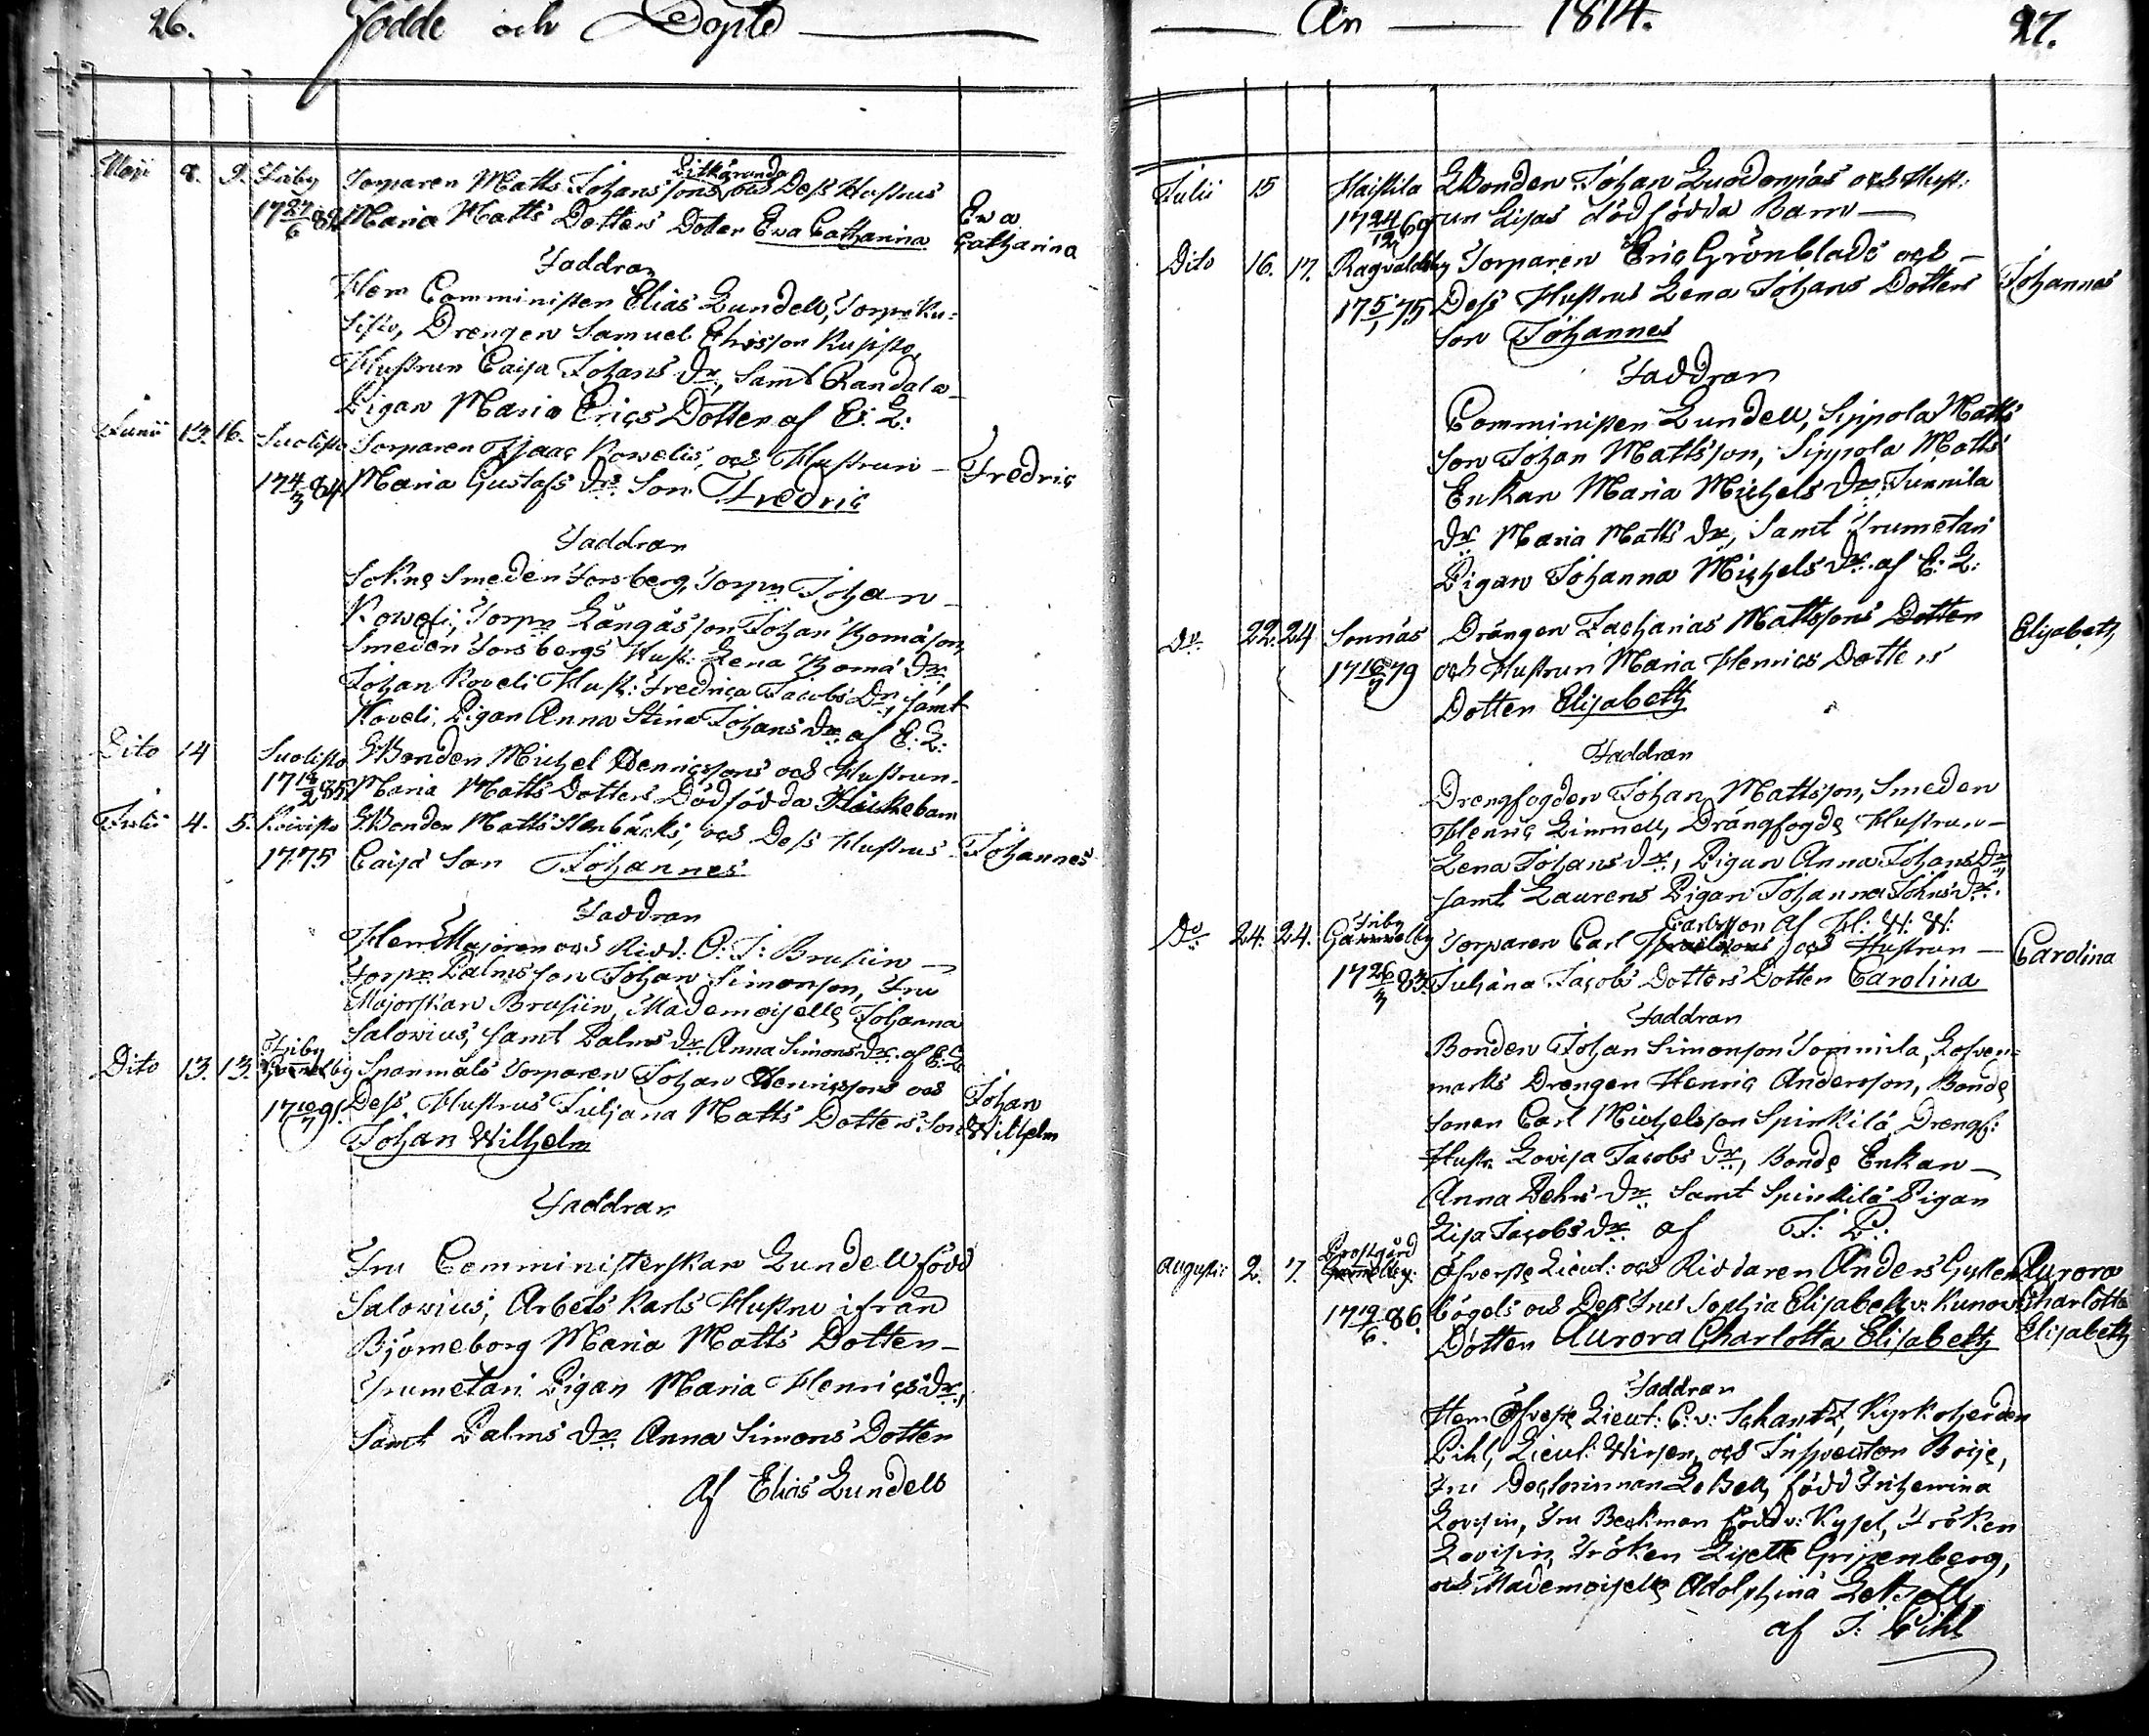 26. Födde och Döpte
Maji 8. 9. Friby Torparen Matts Johanssons Pitkäranda och Dess Hustrus
1727/6 Maria Matts Dotters Dotter Eva Catharina
Eva Catharina
Faddrar
Herr Comministern Elias Lundell, Torp: Ku=
sisto, Drengen Samuel Ehrsson Kusisto,
Hustrun Caisa Johans Dr, samt Randala
Pigan Maria Erics Dotter af E: L:
Junii 13. 16. Suolisto Torparen Isaac Kowelis, och Hustrun
174/3 84 Maria Gustafs Drs Son Fredric
Fredric
Faddrar
Sokne Smeden Forsberg, Torpn Johan
Koweli, Torpn Långås son Johan Thomason,
Smeden Forsbergs Hust: Lena Thoma Dr,
Johan Koveli Hust: Fredrica Jacobs Dr, samt
Koveli, Pigan Anna Stina Johans Dr af E: L:
Dito 14 Suolisto Bonden Michel Henricssons och Hustrun
Maria Matts Dotters Dödfödda Flickebarn
Julii 4. 5. Koivisto Bonden Matts Stenbäcks, och Dess Hustrus
1775 Caisa Son Johannes
Johannes
Faddrar
Herr Majoren och Ridd: O: J: Brusiin
Torpn Palms son Johan Simonson, Fru
Majorskan Brusiin, Mademoiselle Johanna
Salovius, samt Palms Dr Anna Simons Dr af E: L
Dito 13. 13. Friby Spanmåls Torparen Johan Henricssons och
1710/7 91. Dess Hustrus Juliana Matts Dotters Son
Johan Wilhelm
Johan Wilhelm
Faddrar
Fru Comministerskan Lundell född
Salovius, Arbets Karls Hustru ifrån
Björneborg Maria Matts Dotter
Trumetari Pigan Maria Henrics Dr,
Samt Palms Dr Anna Simons Dotter
Af Elias Lundell
År 1814. 27.
Julii 15 Haistila Bonden Johan Luodonpääs och Hust:
1724/12 69 run Lisas dödfödda Barn
Dito 16. 17. Ragvaldsby Torparen Eric Grönblads och
175/1 75 Dess Hustrus Lena Johans Dotters
Son Johannes
Johannes
Faddrar
Comministern Lundell, Sippola Matts
Son Johan Mattsson, Sippola Matts
Enkan Maria Michels Dr, Junnila
Dr Maria Matts Dr, Samt Trumetari
Pigan Johanna Michels Dr af E: L:
Do 22. 24 Sonnäs Drängen Zacharias Mattssons Dotter
79 och Hustrun Maria Henrics Dotters
Dotter Elisabeth
Elisabeth
Faddrar
Drengfogden Johan Mattsson, Smeden
Henric Limnell, Drängfogde Hustrun
Lena Johans Dr, Pigan Anna Johans Dr
samt Laurens Pigan Johanna Johns Dr.
Carlsson af H: W: W:
Do 24. 24. Friby Gammelby Torparen Carl Israelssons och Hustrun
1726/3 83. Juliana Jacobs Dotters Dotter Carolina
Carolina
Faddrar
Bonden Johan Simonson Tommila, Lofven=
marks Drengen Henric Andersson, Bonde
sonen Carl Michelsson Spinkilä, Drengf:
Hustr: Lovisa Jacobs Dr, Bonde Enkan
Anna Pehrs Dr Samt Spinkilä Pigan
Lisa Jacobs Dr af J: P:
Augusti 2. 7. Prostgård Gammelby. Öfverste Lieut: och Riddaren Anders Gyllen
1719/6 86. bögels och Dess Frus Sophia Elisabeth v: Kunow
Dotter Aurora Charlotta Elisabeth
Aurora Charlotta Elisabeth
Faddrar
Herr Öfverste Lieut: C: v: Schantz, Kyrkoherden
Pihl, Lieut: Wirsen, och Inspectorn Boije,
Fru Doctorinnan LeBell, född Inhemina
Lovisin, Fru Beckman född v: Kysel, Fröken
Lovisin, Fröken Lisette Gripenberg,
och Mademoiselle Adolphina LeBell
af J: Pihl